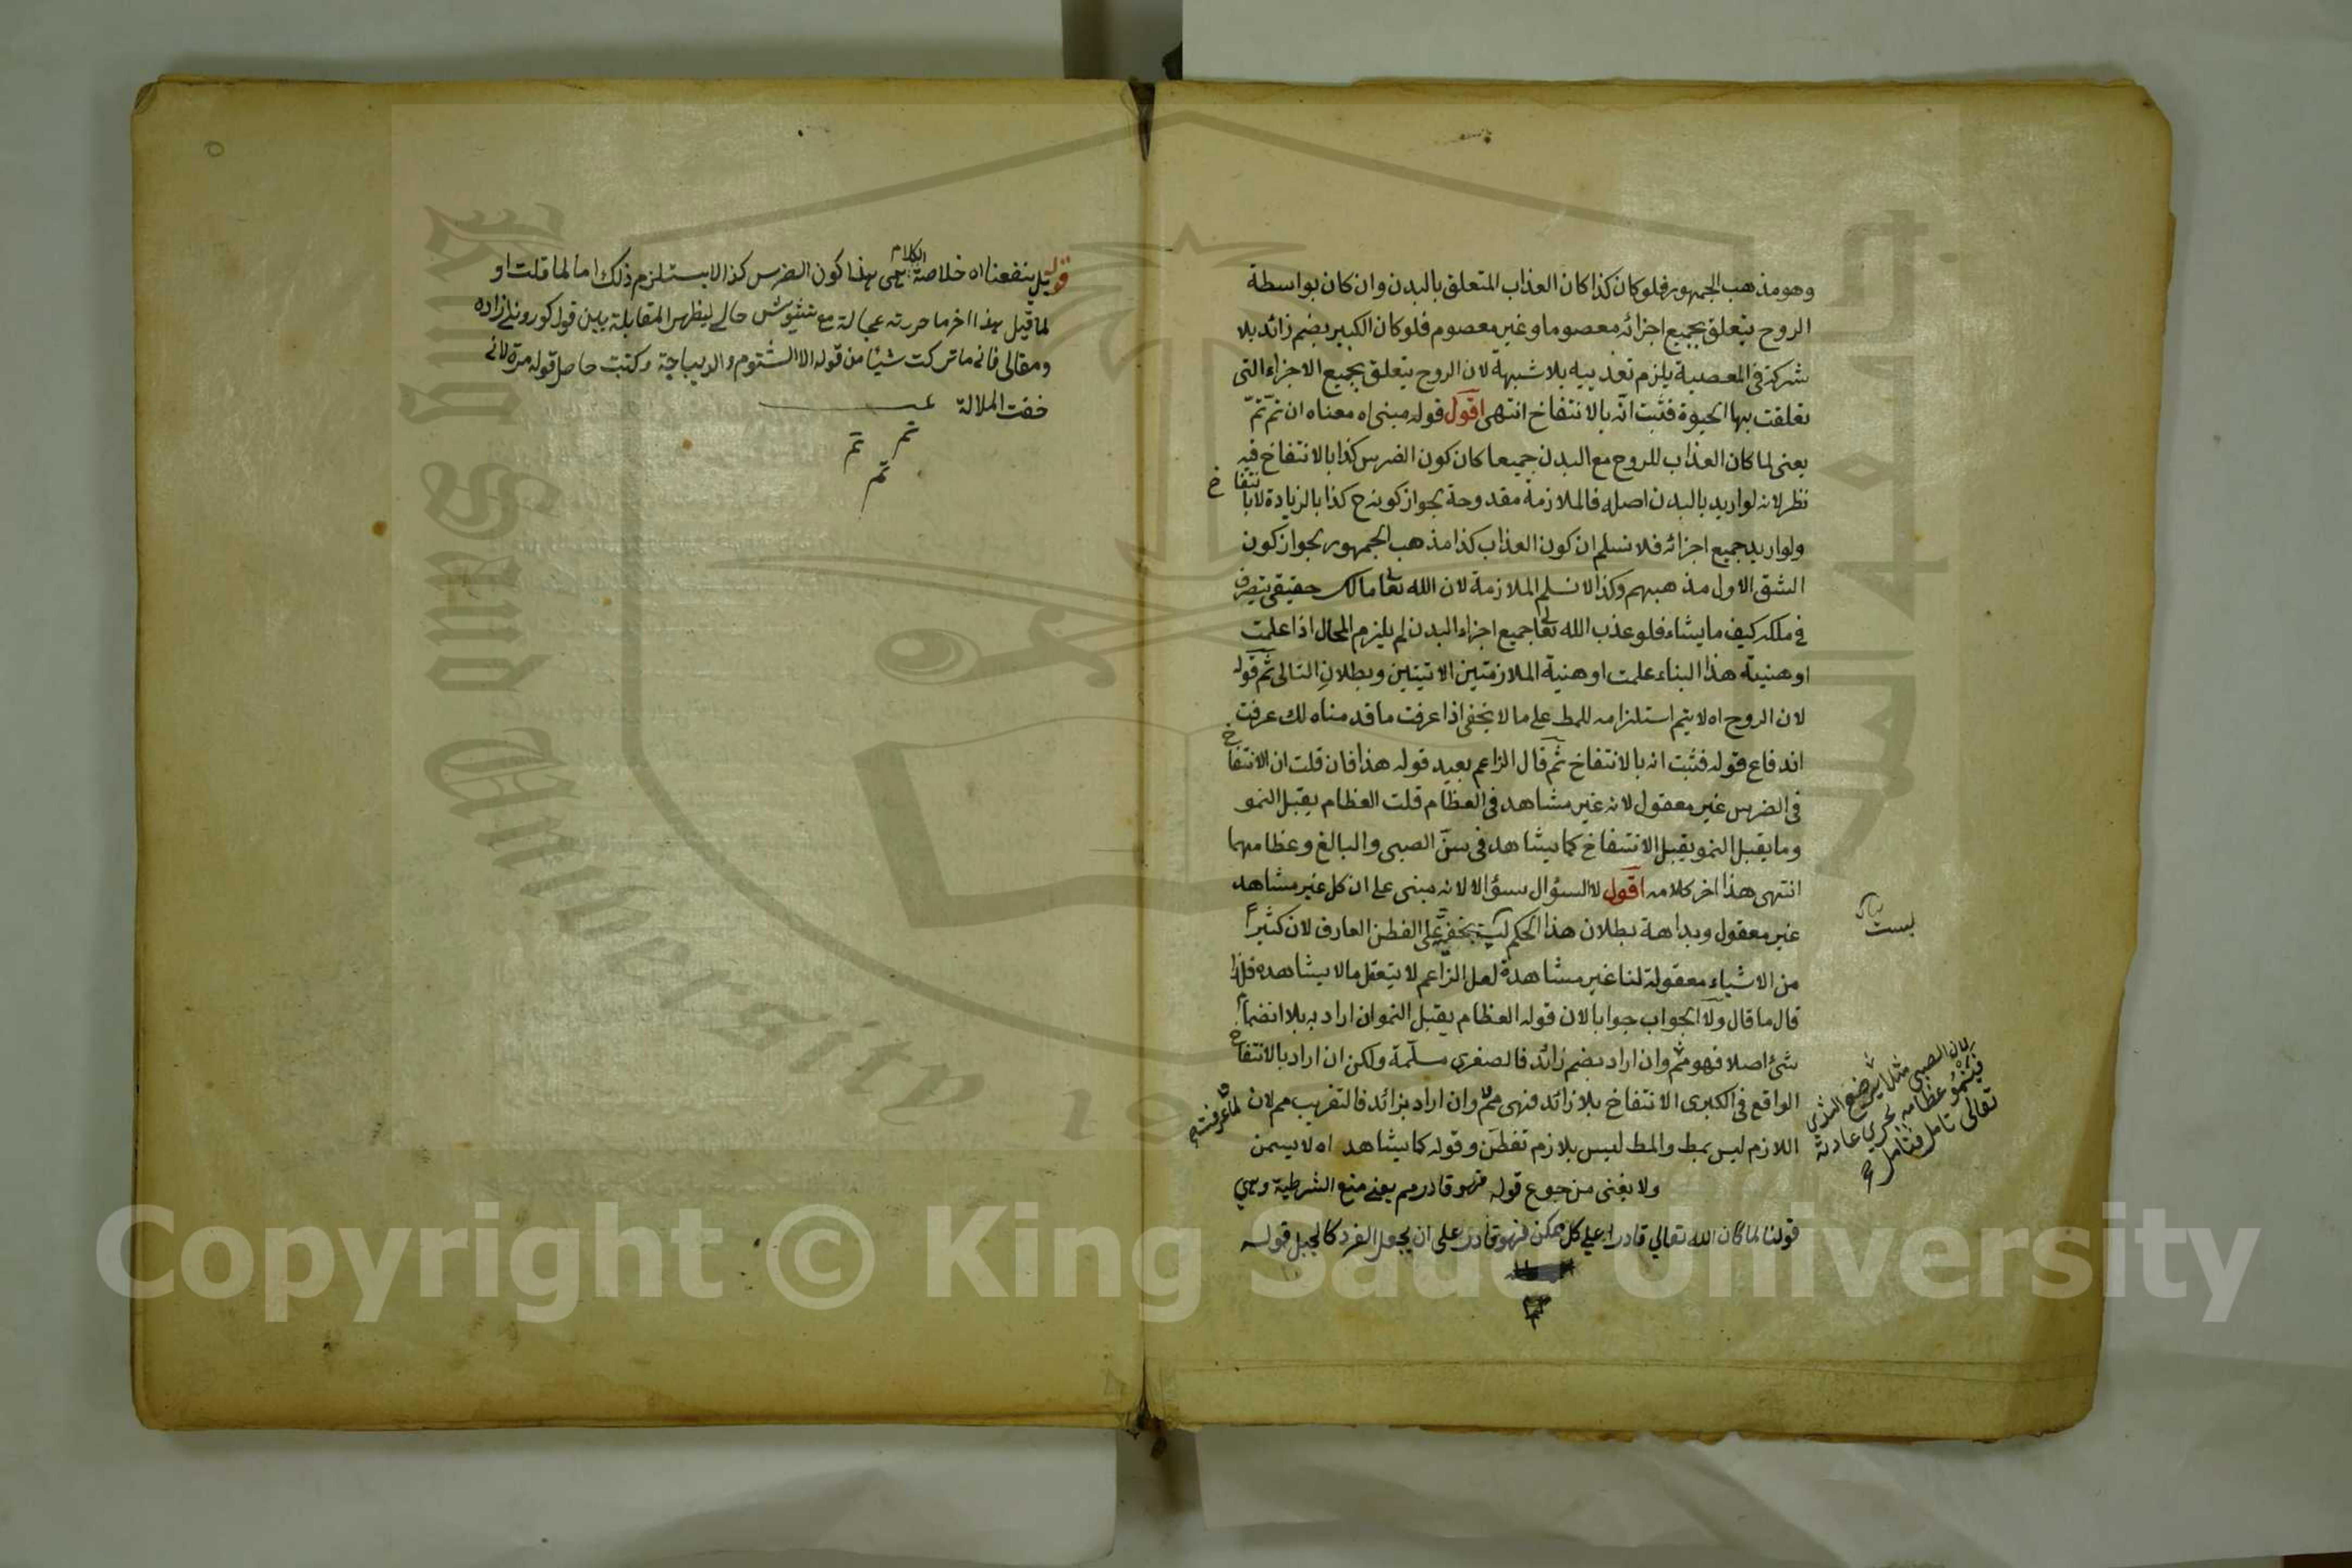 وهو مذهب الجمهور فلو كان كذا كان العذاب المتعلق بالبدن وان كان بواسطة
الروح يتعلق بجميع اجزائه معصوما وغير معصوم فلو كان الكبير بضم زائد بلا
شركة فى المعصية يلزم تعذيبه بلا شبهة لان الروح يتعلق بجميع الاجزاء التى
تعلقت بها الحيوة فثبت انّه بالانتفاخ انتهى اقول قوله مبنى اه معناه ان تمّ تمّ
يعنى لما كان العذاب للروح مع البدن جميعا كان كون الضرس كذا بالانتفاخ فيه
نظر لانه لو اريد بالبدن اصله فالملازمة مقدوحة بجواز كونه ح كذا بالزيادة لا بانتفاخ
ولو اريد جميع اجزائه فلا نسلم ان كون العذاب كذا مذهب الجمهور بجواز كون
الشق الاول مذهبهم وكذا لا نسلم الملازمة لان الله تعا مالك حقيقى يتصرف
فى ملكه كيف ما يشاء فلو عذب الله تعا جميع اجزاء البدن لم يلزم المحال اذا علمت
اوهنية هذا البناء علمت اوهنية الملازمتين الاتيتين وبطلان التالى ثم قوله
لان الروح اه لا يتم استلزامه للمط على ما لا يخفى اذا عرفت ما قدمناه لك عرفت
اندفاع قوله فثبت انه بالانتفاخ ثم قال الزاعم بعيد قوله هذا فان قلت ان الانتفاخ
فى الضرس غير معقول لانه غير مشاهد فى العظام قلت العظام يقبل النمو
وما يقبل النمو يقبل الانتفاخ كما يشاهد فى سنّ الصبى والبالغ وعظامهما
انتهى هذا اخر كلامه اقول لا السؤال سؤالا لانه مبنى على ان كل غير مشاهد
غير معقول وبداهة بطلان هذا الحكم ليست بخفيّة على الفطن العارف لان كثيراً
من الاشياء معقولة لنا غير مشاهدة لعل الزاعم لا يتعقل ما لا يشاهده فلذا
قال ما قال ولا الجواب جوابا لان قوله العظام يقبل النمو ان اراد به بلا انضمام
شئ اصلا فهو مم وان اراد بضم زائد فالصغرى مسلّمة ولكن ان اراد بالانتفاخ
الواقع فى الكبرى الانتفاخ بلا زائد فهى مم وان اراد بزائد فالتقريب مم لان
اللازم ليس بمط والمط ليس بلازم تفطن وقوله كما يشاهد اه لا يسمن
ولا يغنى من جوع قوله فهو قادر مم يعنى منع الشرطية وهى
قولنا لما كان الله تعالى قادرا على كل ممكن فهو قادر على ان يجعل الفرد كالجبل قوله
لما عرفت
ليست
لان الصبى مثلا يرضع الثدى
فينمو عظامه بجرى عادته
تعالى تامل فتامل
قوله بل ينفعنا اه خلاصة الكلام هى هذا كون الضرس كذا لا يستلزم ذلك اما لما قلت او
لما قيل هذا اخر ما حررته عجالة مع تشويش حالى ليظهر المقابلة بين قول كورونلى زاده
ومقالى فانى ما تركت شيئا من قوله الا الشتوم والديباجة وكتبت حاصل قوله مرة لانى
خفت الملالة
تم تم
تم
King Saud University
Copyright © King Saud University